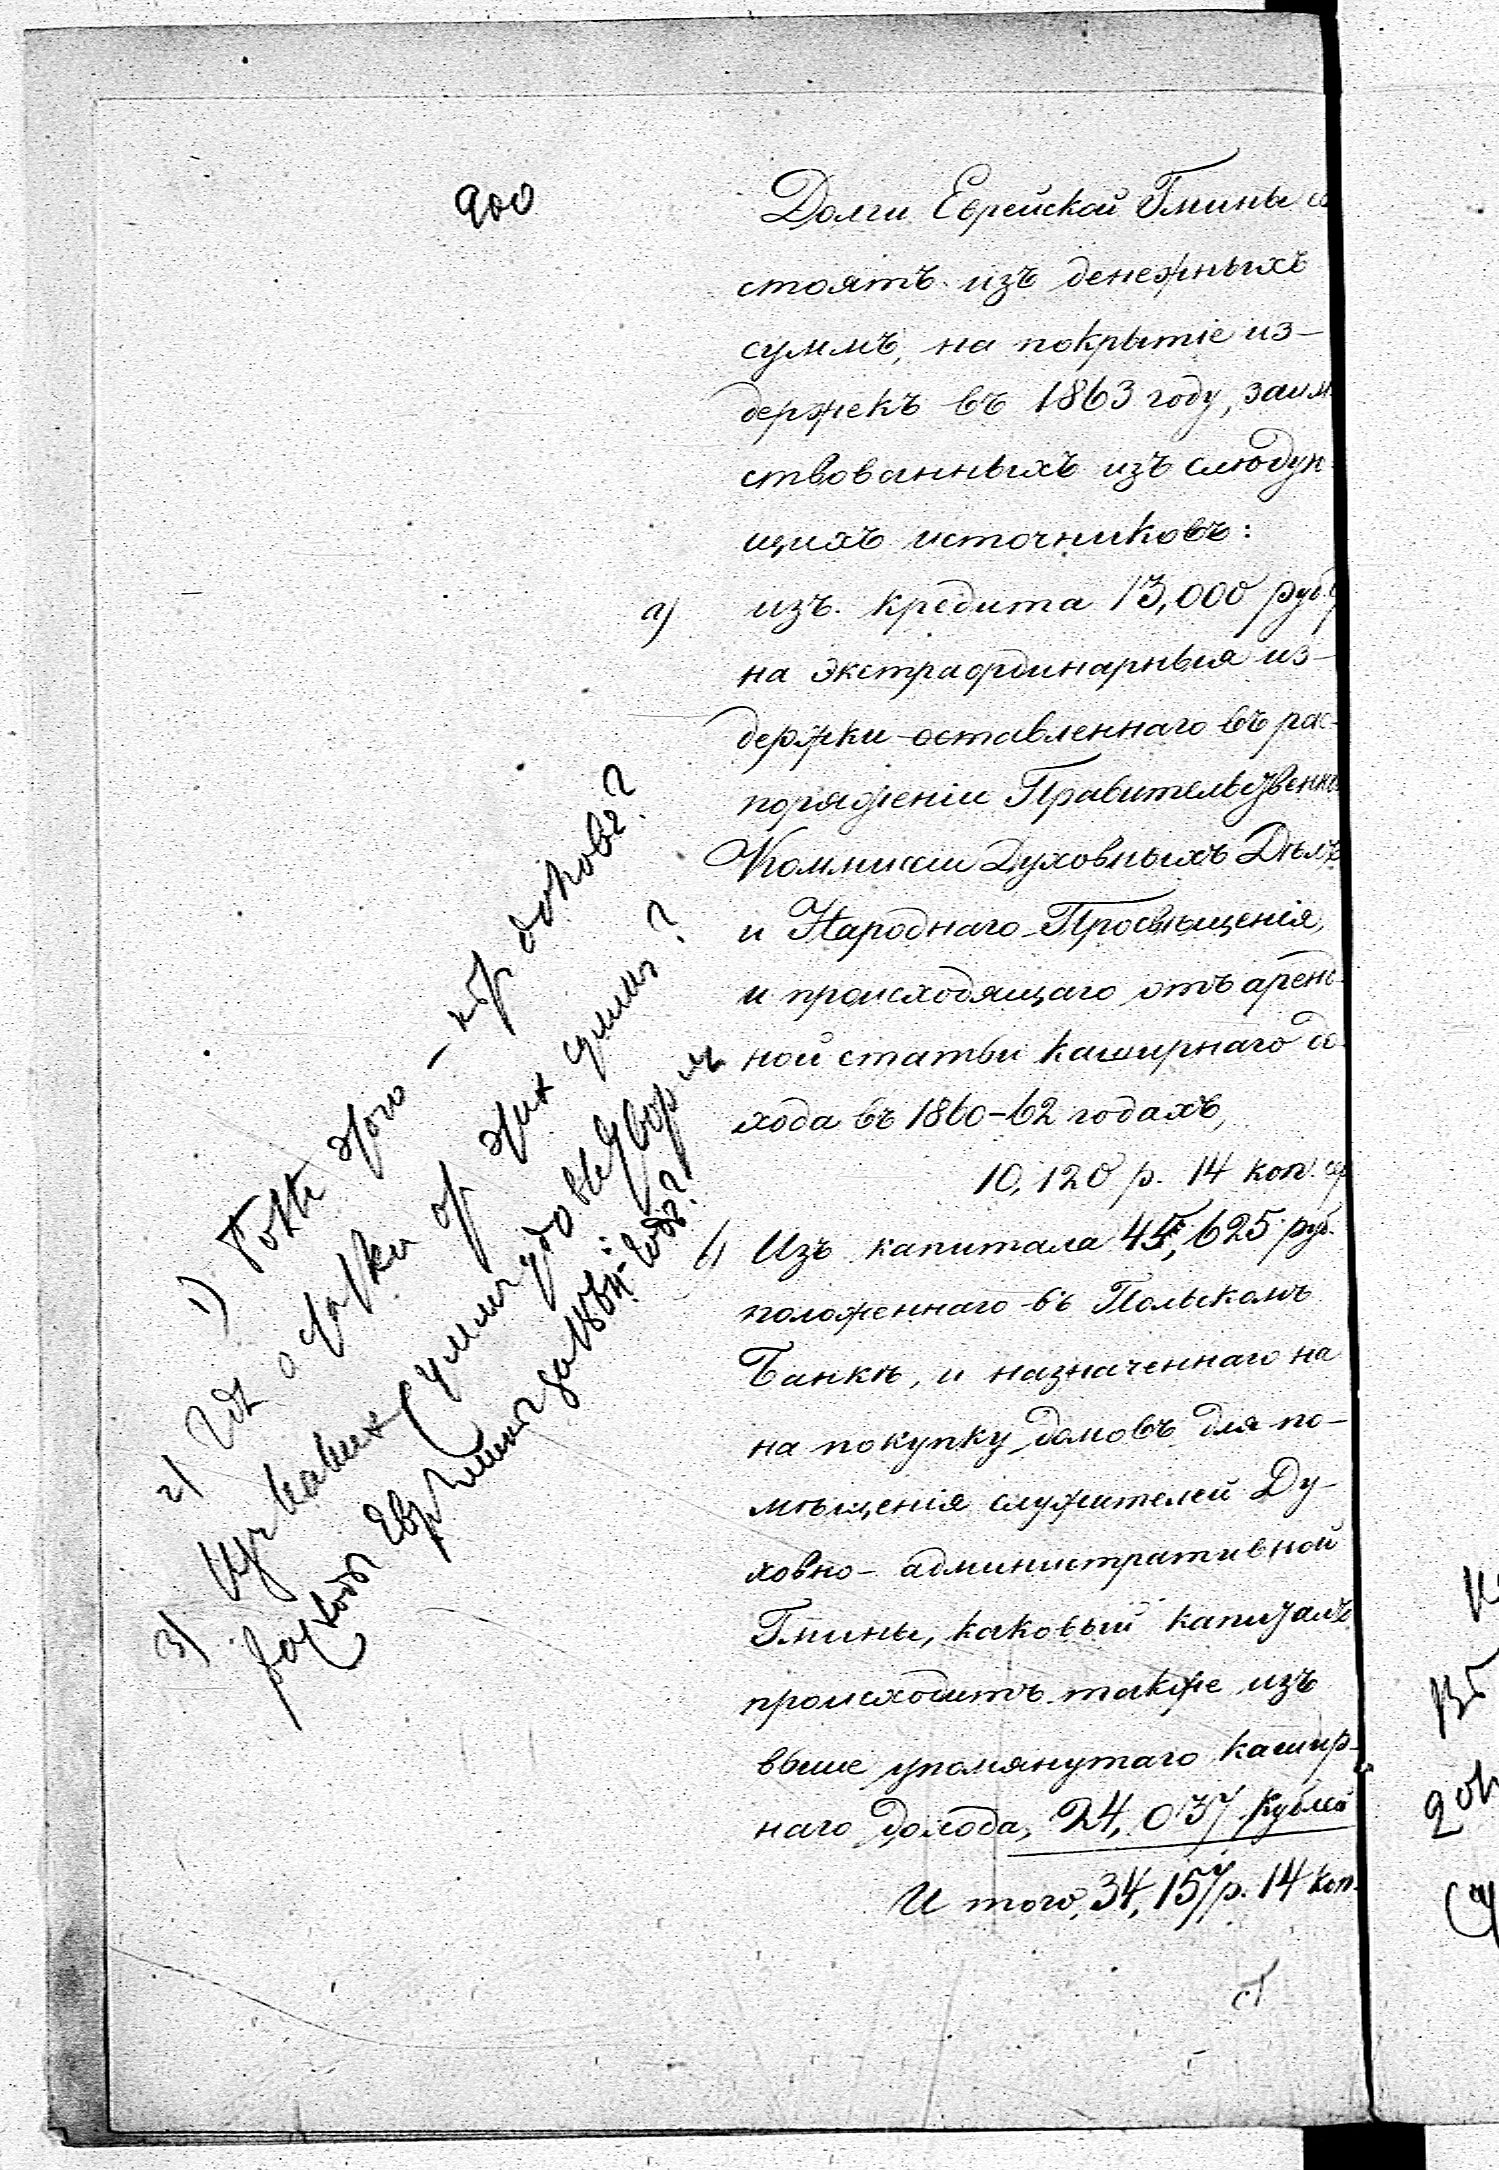 900
Долги Еврейской Гмины со
стоятъ изъ денежныхъ
суммъ, на покрытіе из-
держекъ въ 1863 году, заим
ствованныхъ изъ слѣдую
щихъ источниковъ:
а) изъ кредита 13,000 руб
на экстраординарныя из-
держки оставленнаго въ рас-
поряженіи Правительственн
Коммисіи Духовныхъ Дѣлъ
и Народнаго Просвѣщенія,
и происходящаго отъ аренд
ной статьи каширнаго до-
хода въ 1860-62 годахъ,
10,120 р. 14 коп. ср
b) Изъ капитала 45,625 руб.
положеннаго въ Польскомъ
Банкѣ, и назначеннаго на
на покупку домовъ для по-
мѣщенія служителей Ду-
ховно-административной
Гмины, каковый капиталъ
происходитъ также изъ
выше упомянутаго кашир-
наго дохода, 24,037 рублей
И того, 34,157 р. 14 коп.
1) этого -
2) Гдѣ остатки от этих сумм?
3) Из каких сумм удовлетворить
расходы Евр.